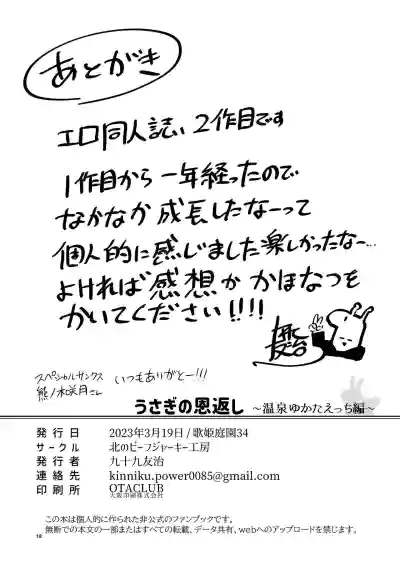 あとがき
エロ同人誌、2作目です
1作目から一年経ったので
なかなか成長したなーって
個人的に感じました楽しかったなー…
よければ感想か かほなつを
かいてください!!!!
スペシャルサンクス
熊ノ木咲月さん
いつもありがとー!!!
うさぎの恩返し
~温泉ゆかたえっち編~
発行日 2023年3月19日/歌姫庭園34
サークル 北のビーフジャーキー工房
発行者 九十九友治
連絡先 kinniku.power0085@gmail.com
印刷所 OTACLUB
大阪印刷株式会社
この本は個人的に作られた非公式のファンブックです。
無断での本文の一部またはすべての転載、データ共有、webへのアップロードを禁じます。
18